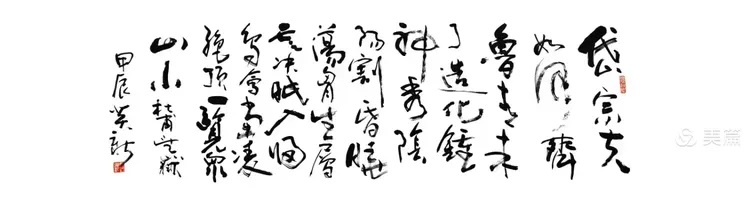 岱宗夫
如何齊
魯青未
了造化鍾
神秀陰
陽割昏曉
蕩胸生層
雲决眦入歸
鳥會當凌
絶頂一覽衆
山小 杜甫望嶽
甲辰
美篇